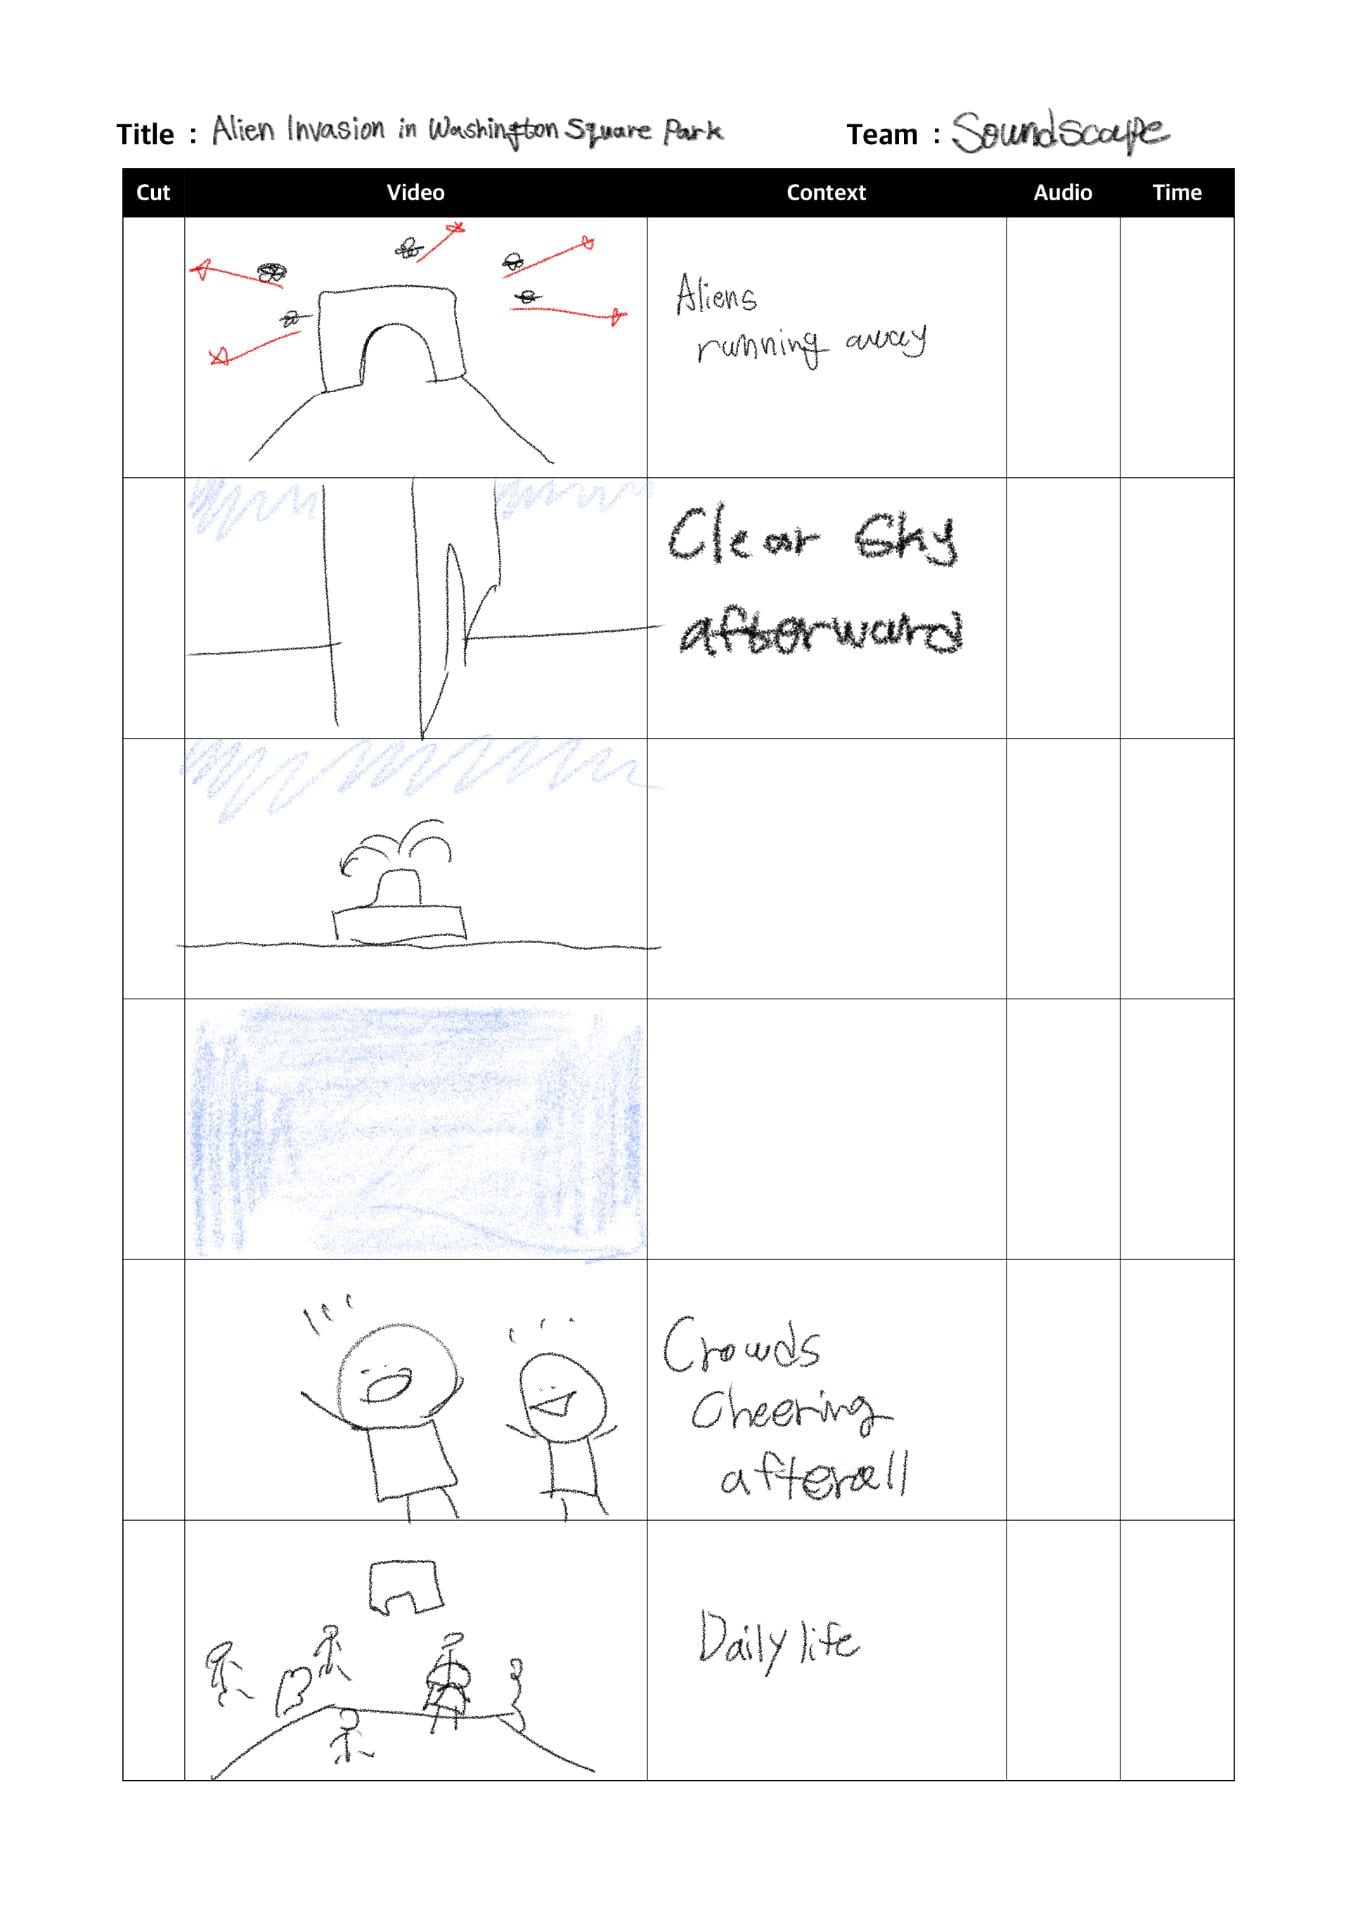 Title : Alien Invasion in Washington Square Park
Team : Soundscape
Cut Video Context Audio Time
Aliens
running away
Clear Sky
afterward
Crowds
Cheering
afterall
Daily life